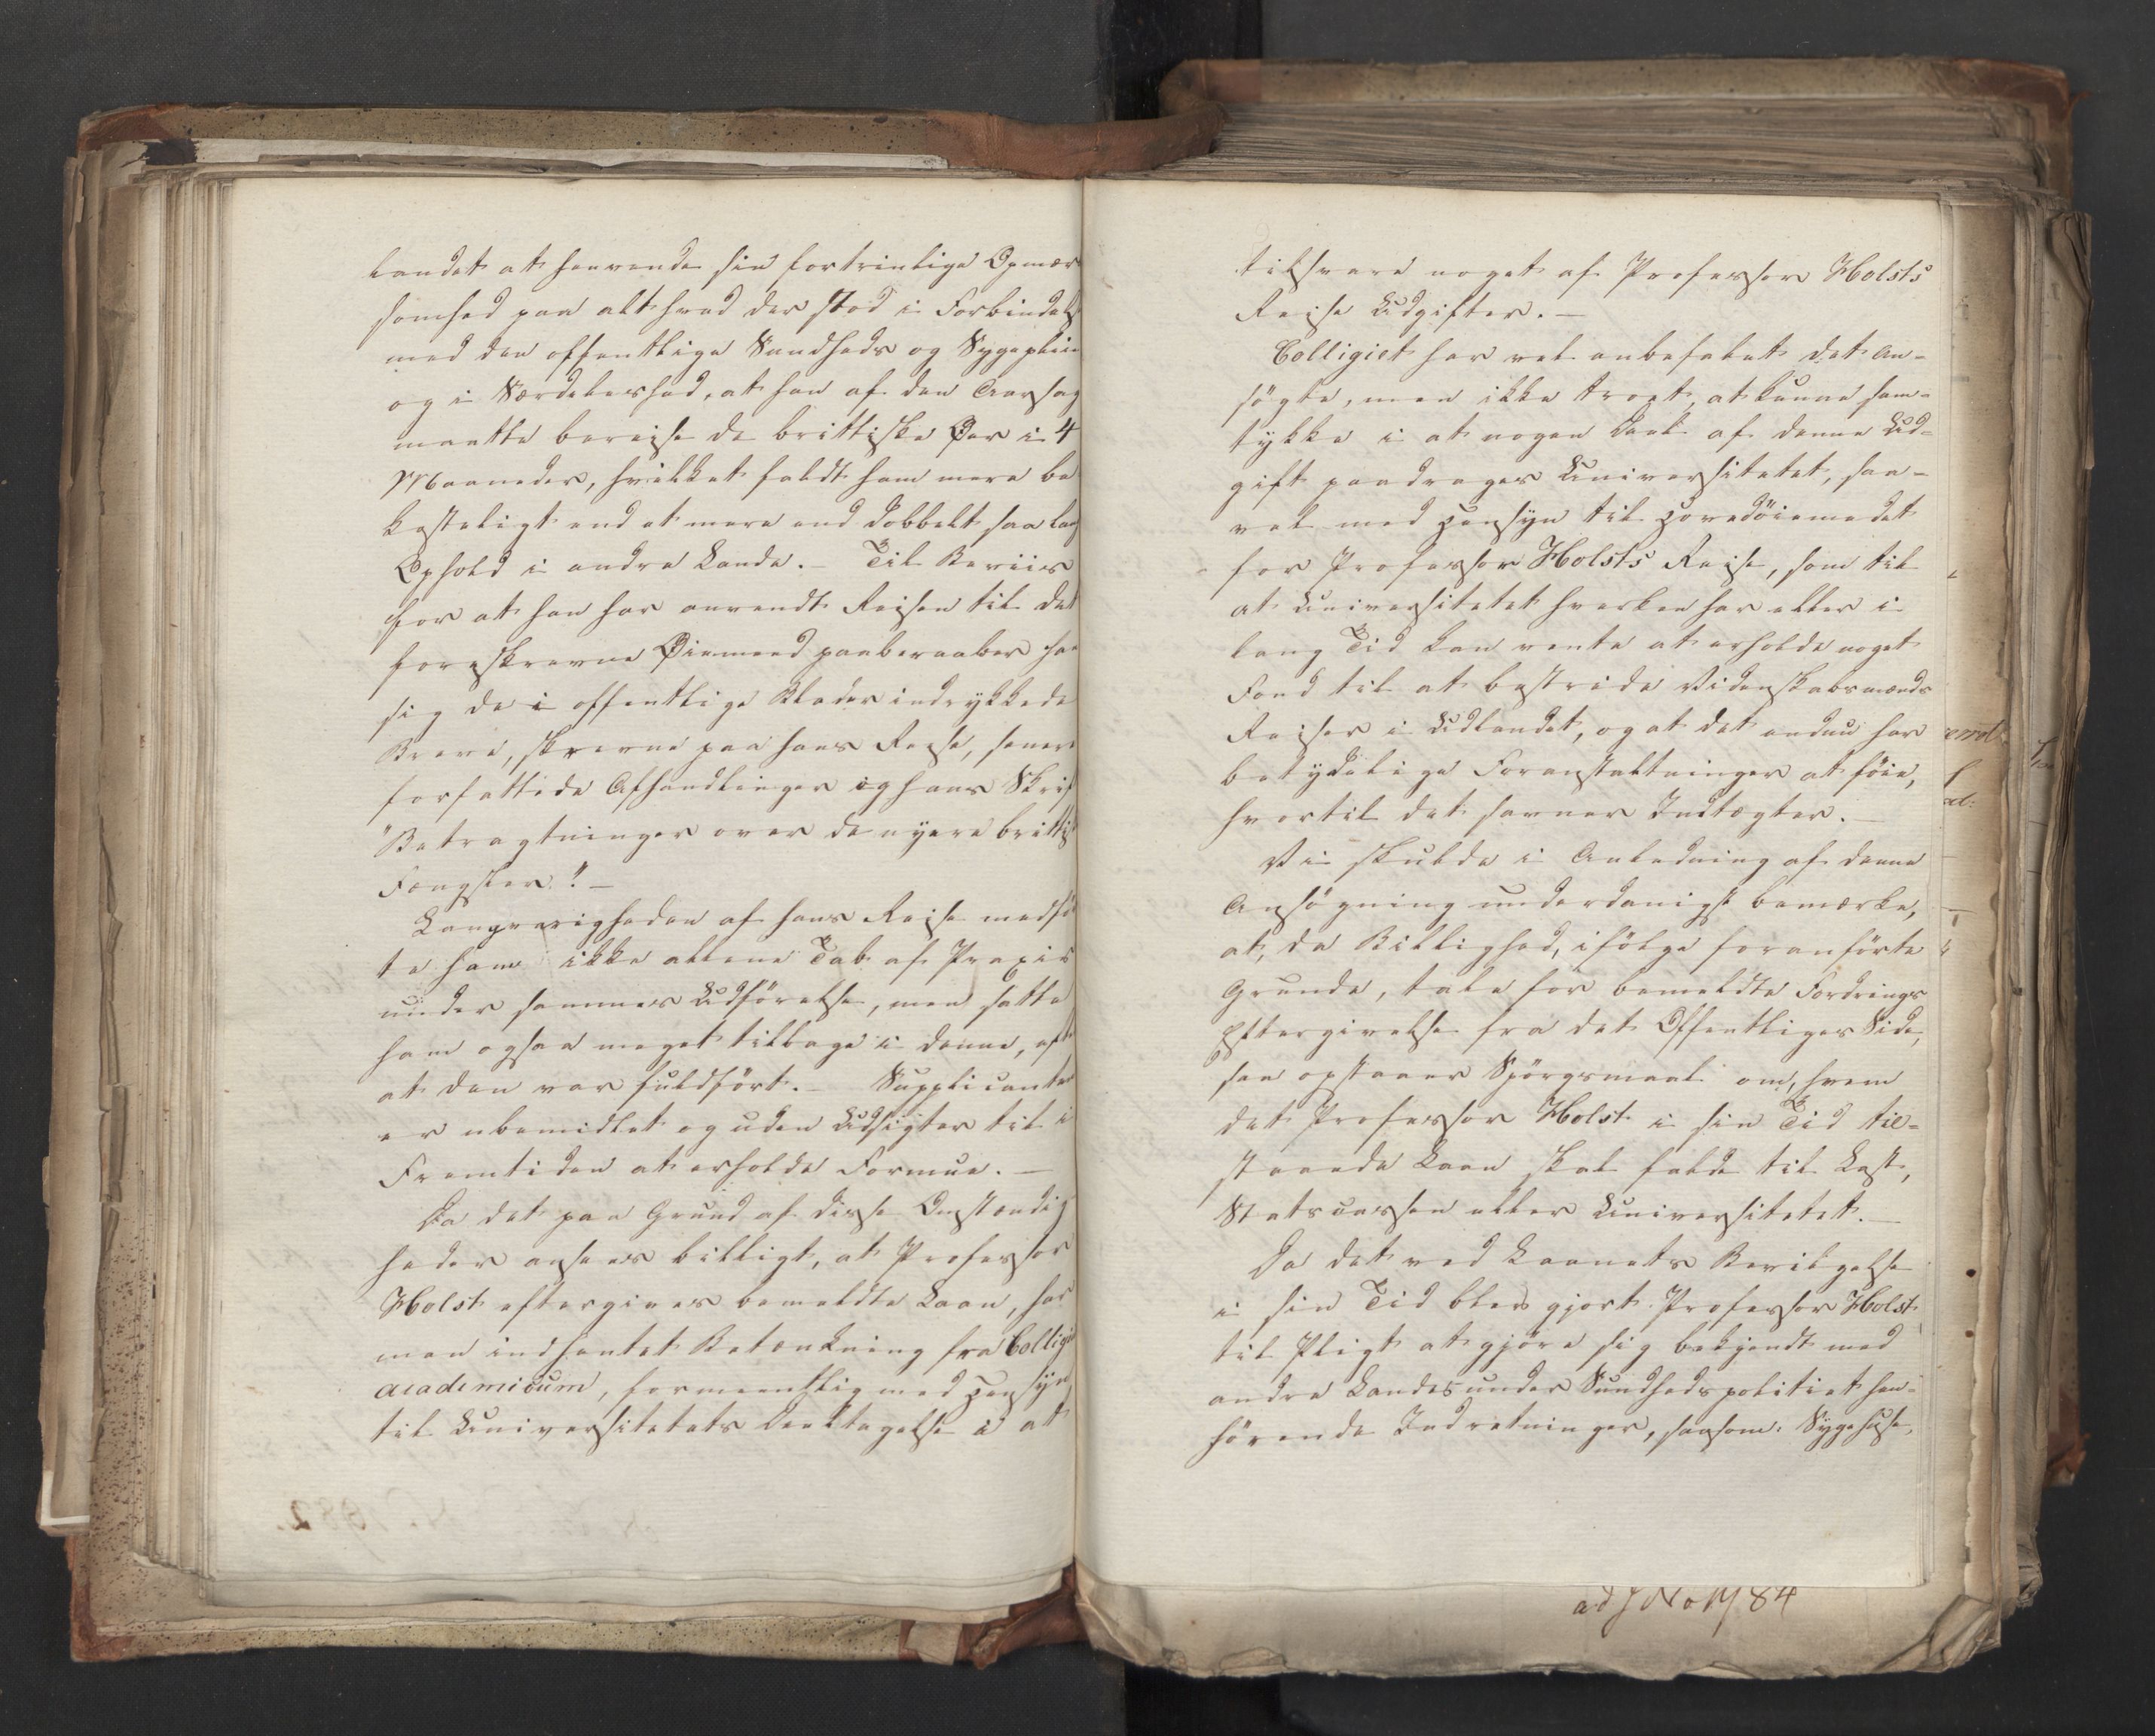 landet at henvende sin fortrinlige Opmær
somhed paa alt hvad der stod i Forbindelse
med den offentlige Sundheds og Sygepleie
og i Særdeleshed, at han af den Aarsag
maatte bereise de brittiske Øer i 4
Maaneder, hvilket faldt ham mere be
kosteligt end et mere end dobbelt saa lang
Ophold i andre Lande. – Til Beviis
for at han har anvendt Reisen til det
foreskrevne Øiemeed paaberaaber han
sig de i offentlige Blader indrykkede
Breve, skrevne paa hans Reise, senere
forfattede Afhandlinger og hans Skrif
"Betragtninger over de nyere brittisk
Fængsler". –
Langvarigheden af hans Reise medfø
te ham ikke allene Tab af Praxis
under sammes Udførelse, men satte
ham ogsaa meget tilbage i denne, efte
at den var fuldført. – Supplicanten
er ubemidlet og uden Udsigter til i
Fremtiden at erholde Formue. –
Da det paa Grund af disse Omstændig
heder ansees billigt, at Professor
Holst eftergives bemeldte Laan, har
man indhentet Betænkning fra Collegi
academicum, formeentlig med Hensyn
til Universitetets Deeltagelse i at
tilsvare noget af Professor Holsts
Reise Udgifter. –
Collegiet har vel anbefalet det An-
søgte, men ikke troet, at kunne sam-
tykke i at nogen Deel af denne Ud-
gift paadrages Universitetet, saa-
vel med Hensyn til Hovedøiemedet
for Professor Holsts Reise, som til
at Universitetet hverken har eller i
lang Tid kan vente at erholde noget
Fond til at bestride Videnskabsmænds
Reiser i Udlandet, og at det endnu har
betydelige Foranstaltninger at føie,
hvortil det savner Indtægter. –
Vi skulde i Anledning af denne
Ansøgning underdanigst bemærke,
at, da Billighed, ifølge foranførte
Grunde, tale for bemeldte Fordrings
Eftergivelse fra det Offentliges Side,
saa opstaaer Spørgsmaal om, hvem
det Professor Holst i sin Tid til-
staaede Laan skal falde til Last,
Statscassen eller Universitetet. –
Da det ved Laanets Bevilgelse
i sin Tid blev gjort Professor Holst
til Pligt at gjøre sig bekjendt med
andre Landes under Sundhedspolitiet hen-
hørende Indretninger, saasom: Sygehuse,
ad J No 1984